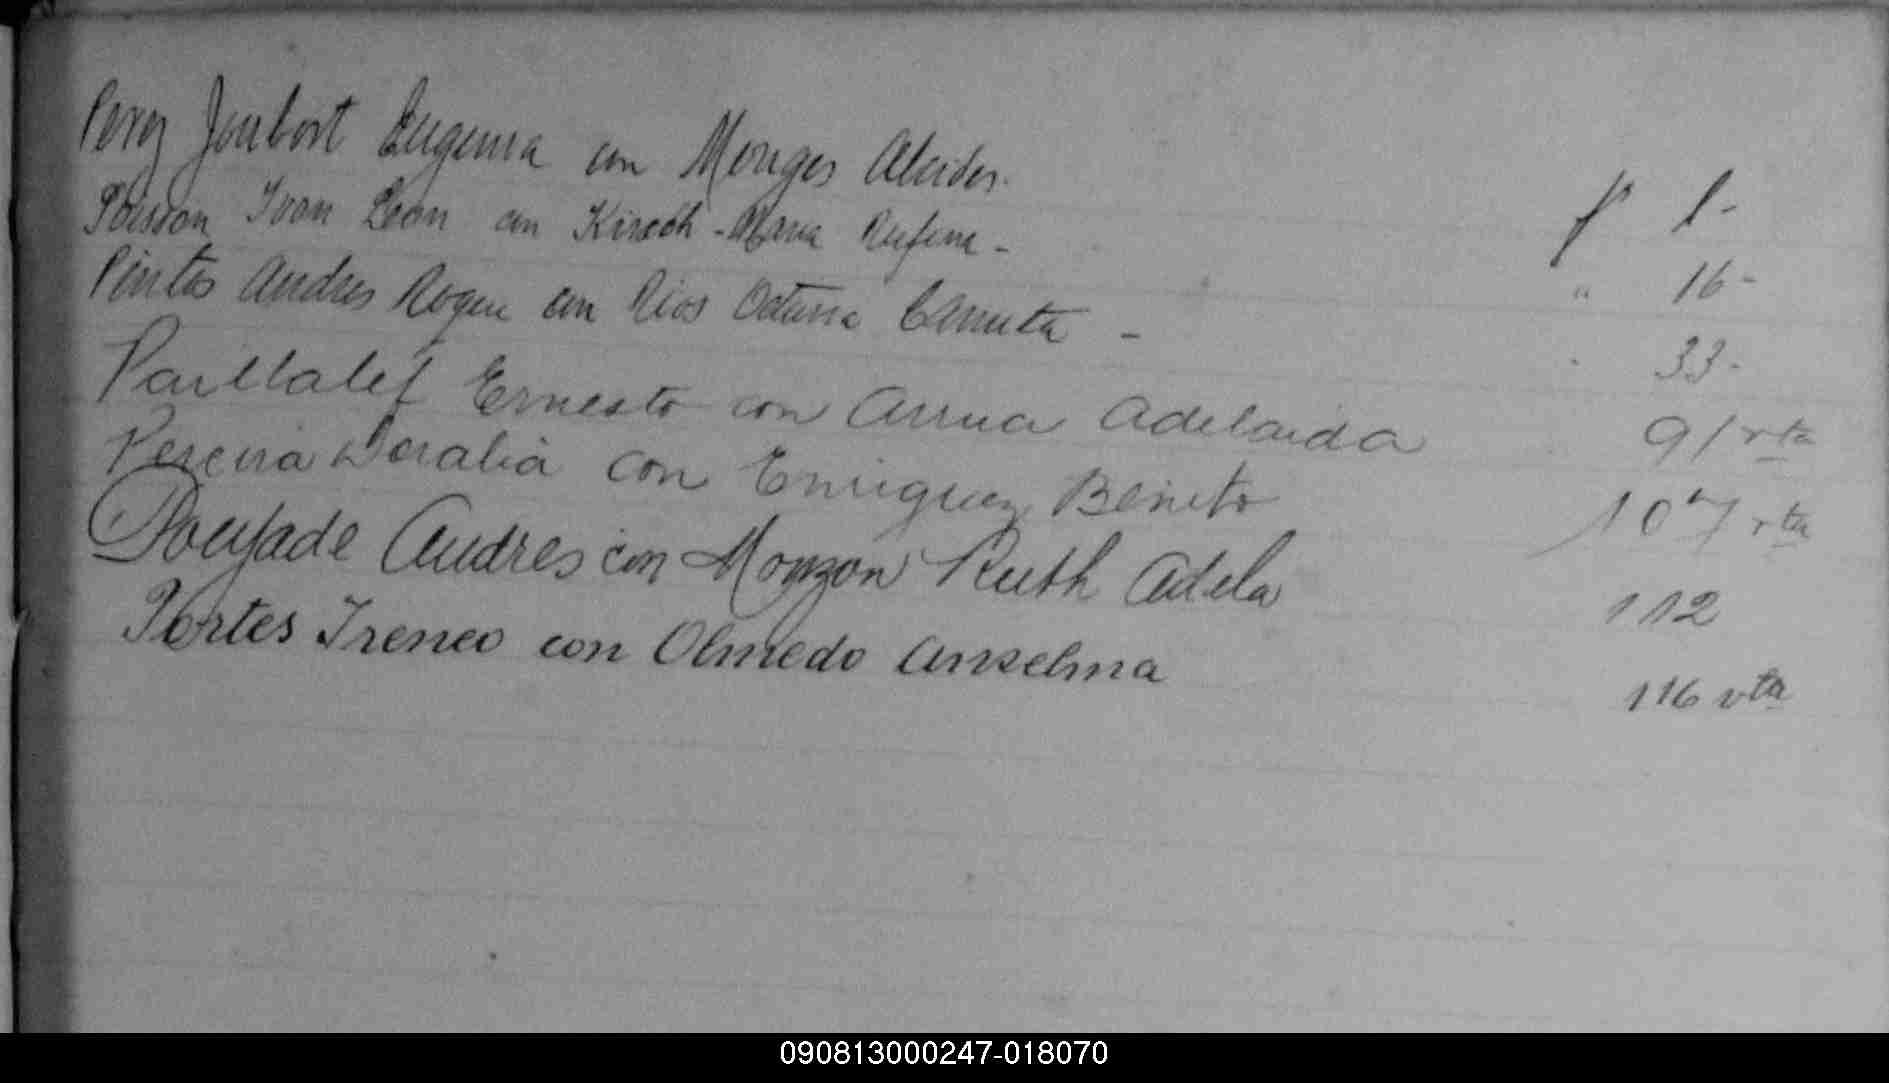 Perez Joubert Eugenia con Monges Alcides. f 1-
Poisson Ivon Leon con Kirsch - Maria Rufina - " 16-
Pintos Andres Roque con Rios Octavia Canuta - 33-
Paillalef Ernesto con Arrua Adelaida 91 vta
Pereira Doralia con Enriquez Benito 107 vta
Poujade Andres con Monzon Ruth Adela 112
Portes Ireneo con Olmedo Anselma 116 vta
090813000247-018070